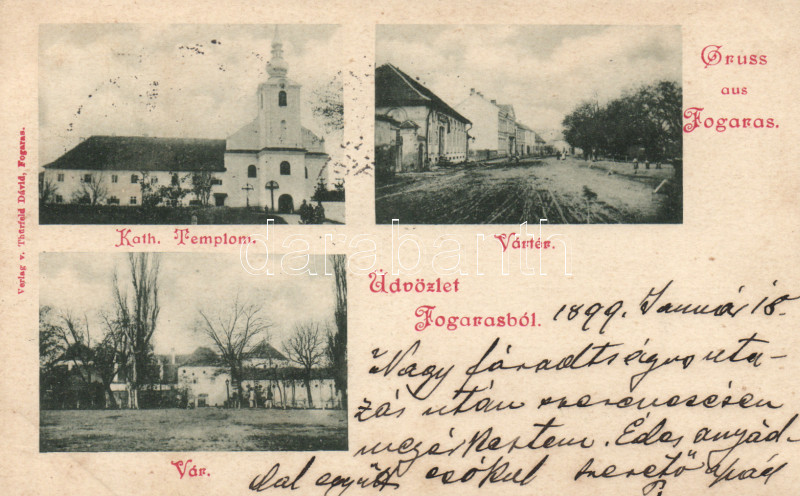 Gruss
aus
Fogaras.
Kath. Templom.
Vártér.
Verlag v. Thürfeld Dávid, Fogaras.
darabanth
Üdvözlet
Fogarasból.
Vár.
1899. Január 18.
Nagy fáradtságos uta-
zás után szerencsésen
megérkeztem. Édes anyád-
dal együtt csókol szerető apád